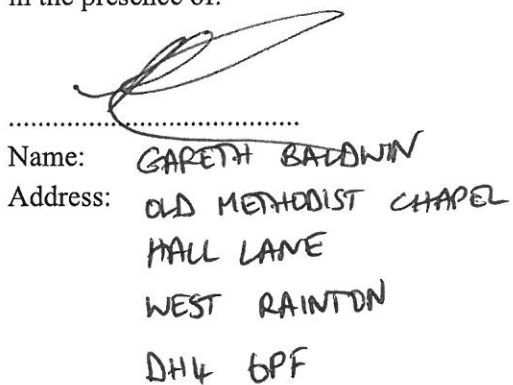 in the presence of:
Name: GARETH BALDWIN
Address: OLD METHODIST CHAPEL
HALL LANE
WEST RAINTON
DH4 6PF